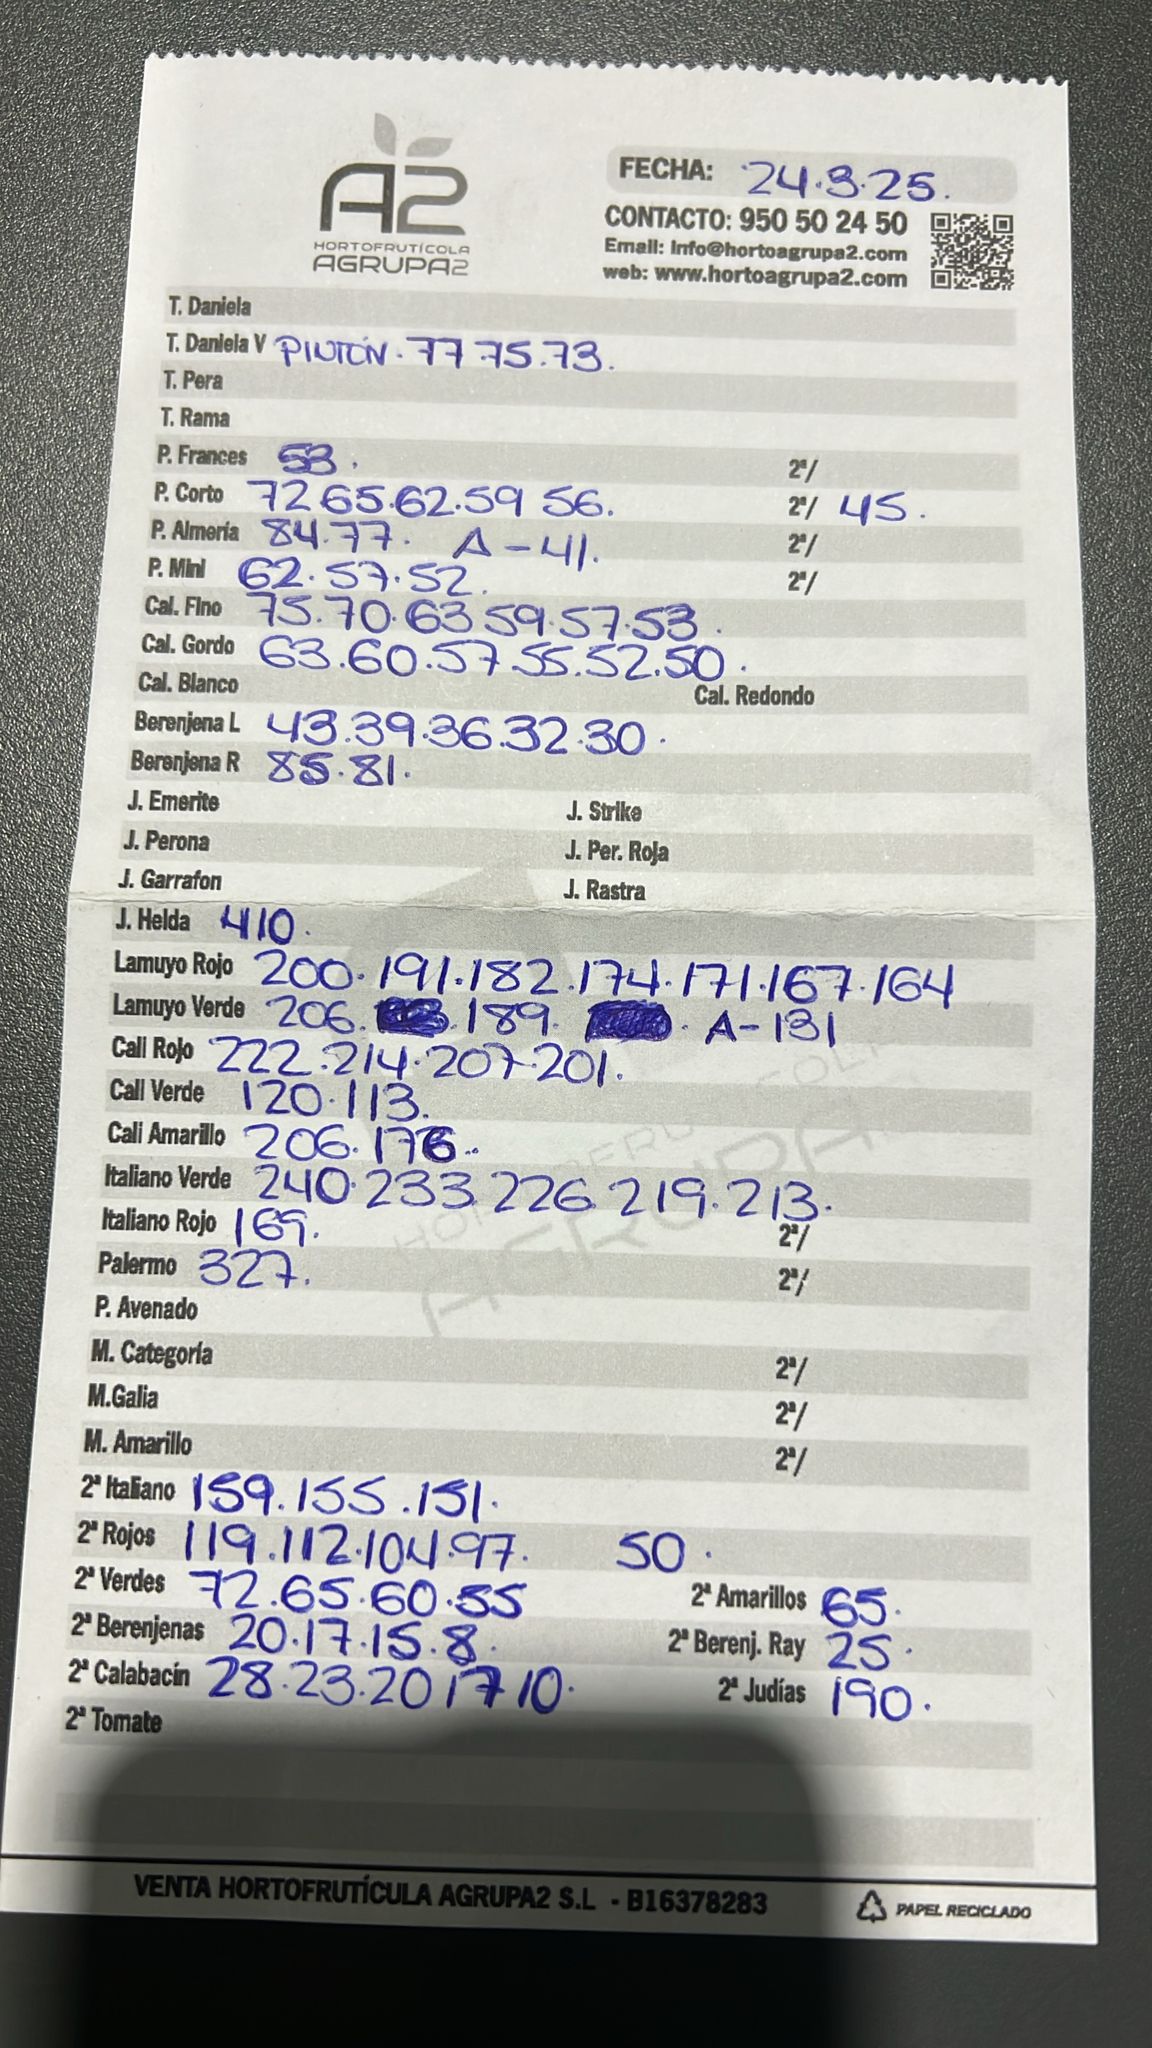 A2
HORTOFRUTÍCOLA
AGRUPA2
FECHA: 24.3.25.
CONTACTO: 950 50 24 50
Email: Info@hortoagrupa2.com
web: www.hortoagrupa2.com
T. Daniela
T. Daniela V PINTÓN. 77 75.73.
T. Pera
T. Rama
P. Frances 53. 2ª/
P. Corto 72 65.62.59 56. 2ª/ 45.
P. Almería 84.77. A-41. 2ª/
P. Mini 62.57.52. 2ª/
Cal. Fino 75.70.63 59.57.53.
Cal. Gordo 63.60.57 55.52.50.
Cal. Blanco Cal. Redondo
Berenjena L 43.39.36.32.30.
Berenjena R 85.81.
J. Emerite J. Strike
J. Perona J. Per. Roja
J. Garrafon J. Rastra
J. Helda 410.
Lamuyo Rojo 200.191.182.174.171.167.164
Lamuyo Verde 206. .189. . A-131
Cali Rojo 222.214.207.201.
Cali Verde 120.113.
Cali Amarillo 206.176..
Italiano Verde 240.233.226.219.213.
Italiano Rojo 169. 2ª/
Palermo 327. 2ª/
P. Avenado
M. Categoría 2ª/
M.Galia 2ª/
M. Amarillo 2ª/
2ª Italiano 159.155.151.
2ª Rojos 119.112.104.97. 50.
2ª Verdes 72.65.60.55 2ª Amarillos 65.
2ª Berenjenas 20.17.15.8. 2ª Berenj. Ray 25.
2ª Calabacín 28.23.20 17 10. 2ª Judías 190.
2ª Tomate
VENTA HORTOFRUTÍCULA AGRUPA2 S.L - B16378283
PAPEL RECICLADO